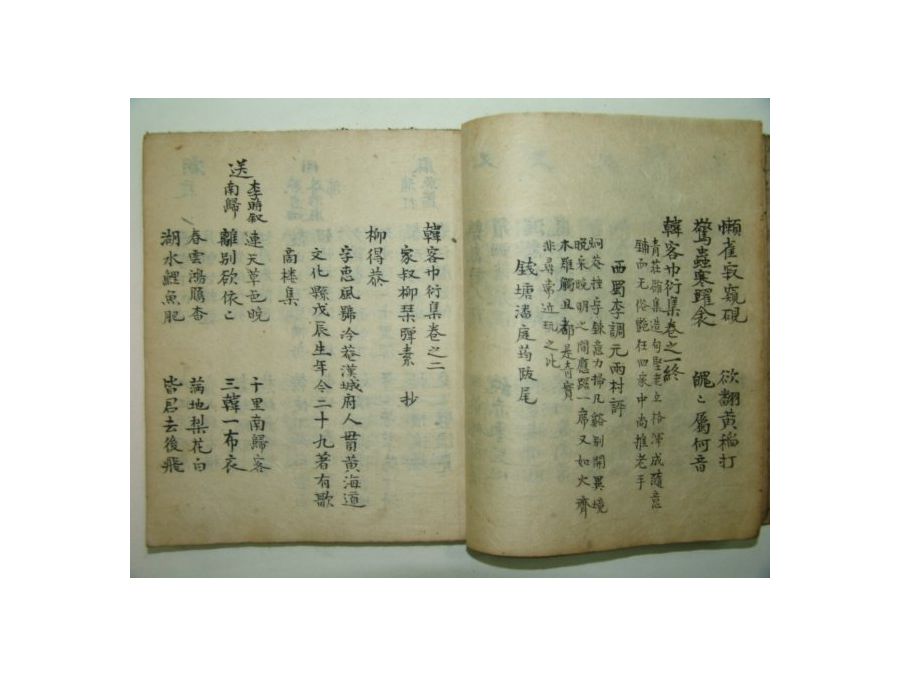 懶雀寂窺硯 欲翻黃稻打
驚蟲寒躍衾 餽〻屬何音
韓客巾衍集卷之一終
青莊雅集造句堅老立格渾成隨意
鋪而无俗艶在四家中尚推老手
西蜀李調元雨村評
炯菴 鍊意力掃凡谿別開異境
晚宋晚明之間應踞一席又如火齊
木難觸且都是奇寶
非尋常近玩之比
錢塘潘庭筠跋尾
韓客巾衍集卷之二
家叔柳琹彈素 抄
柳得恭
字惠風號泠菴漢城府人貫黃海道
文化縣戊辰生年今二十九著有歌
商樓集
送李 叔南歸
連天草色晚 千里南歸客
離別欲依〻 三韓一布衣
春雲鴻鴈杳 滿地梨花白
湖水鯉魚肥 皆君去後飛